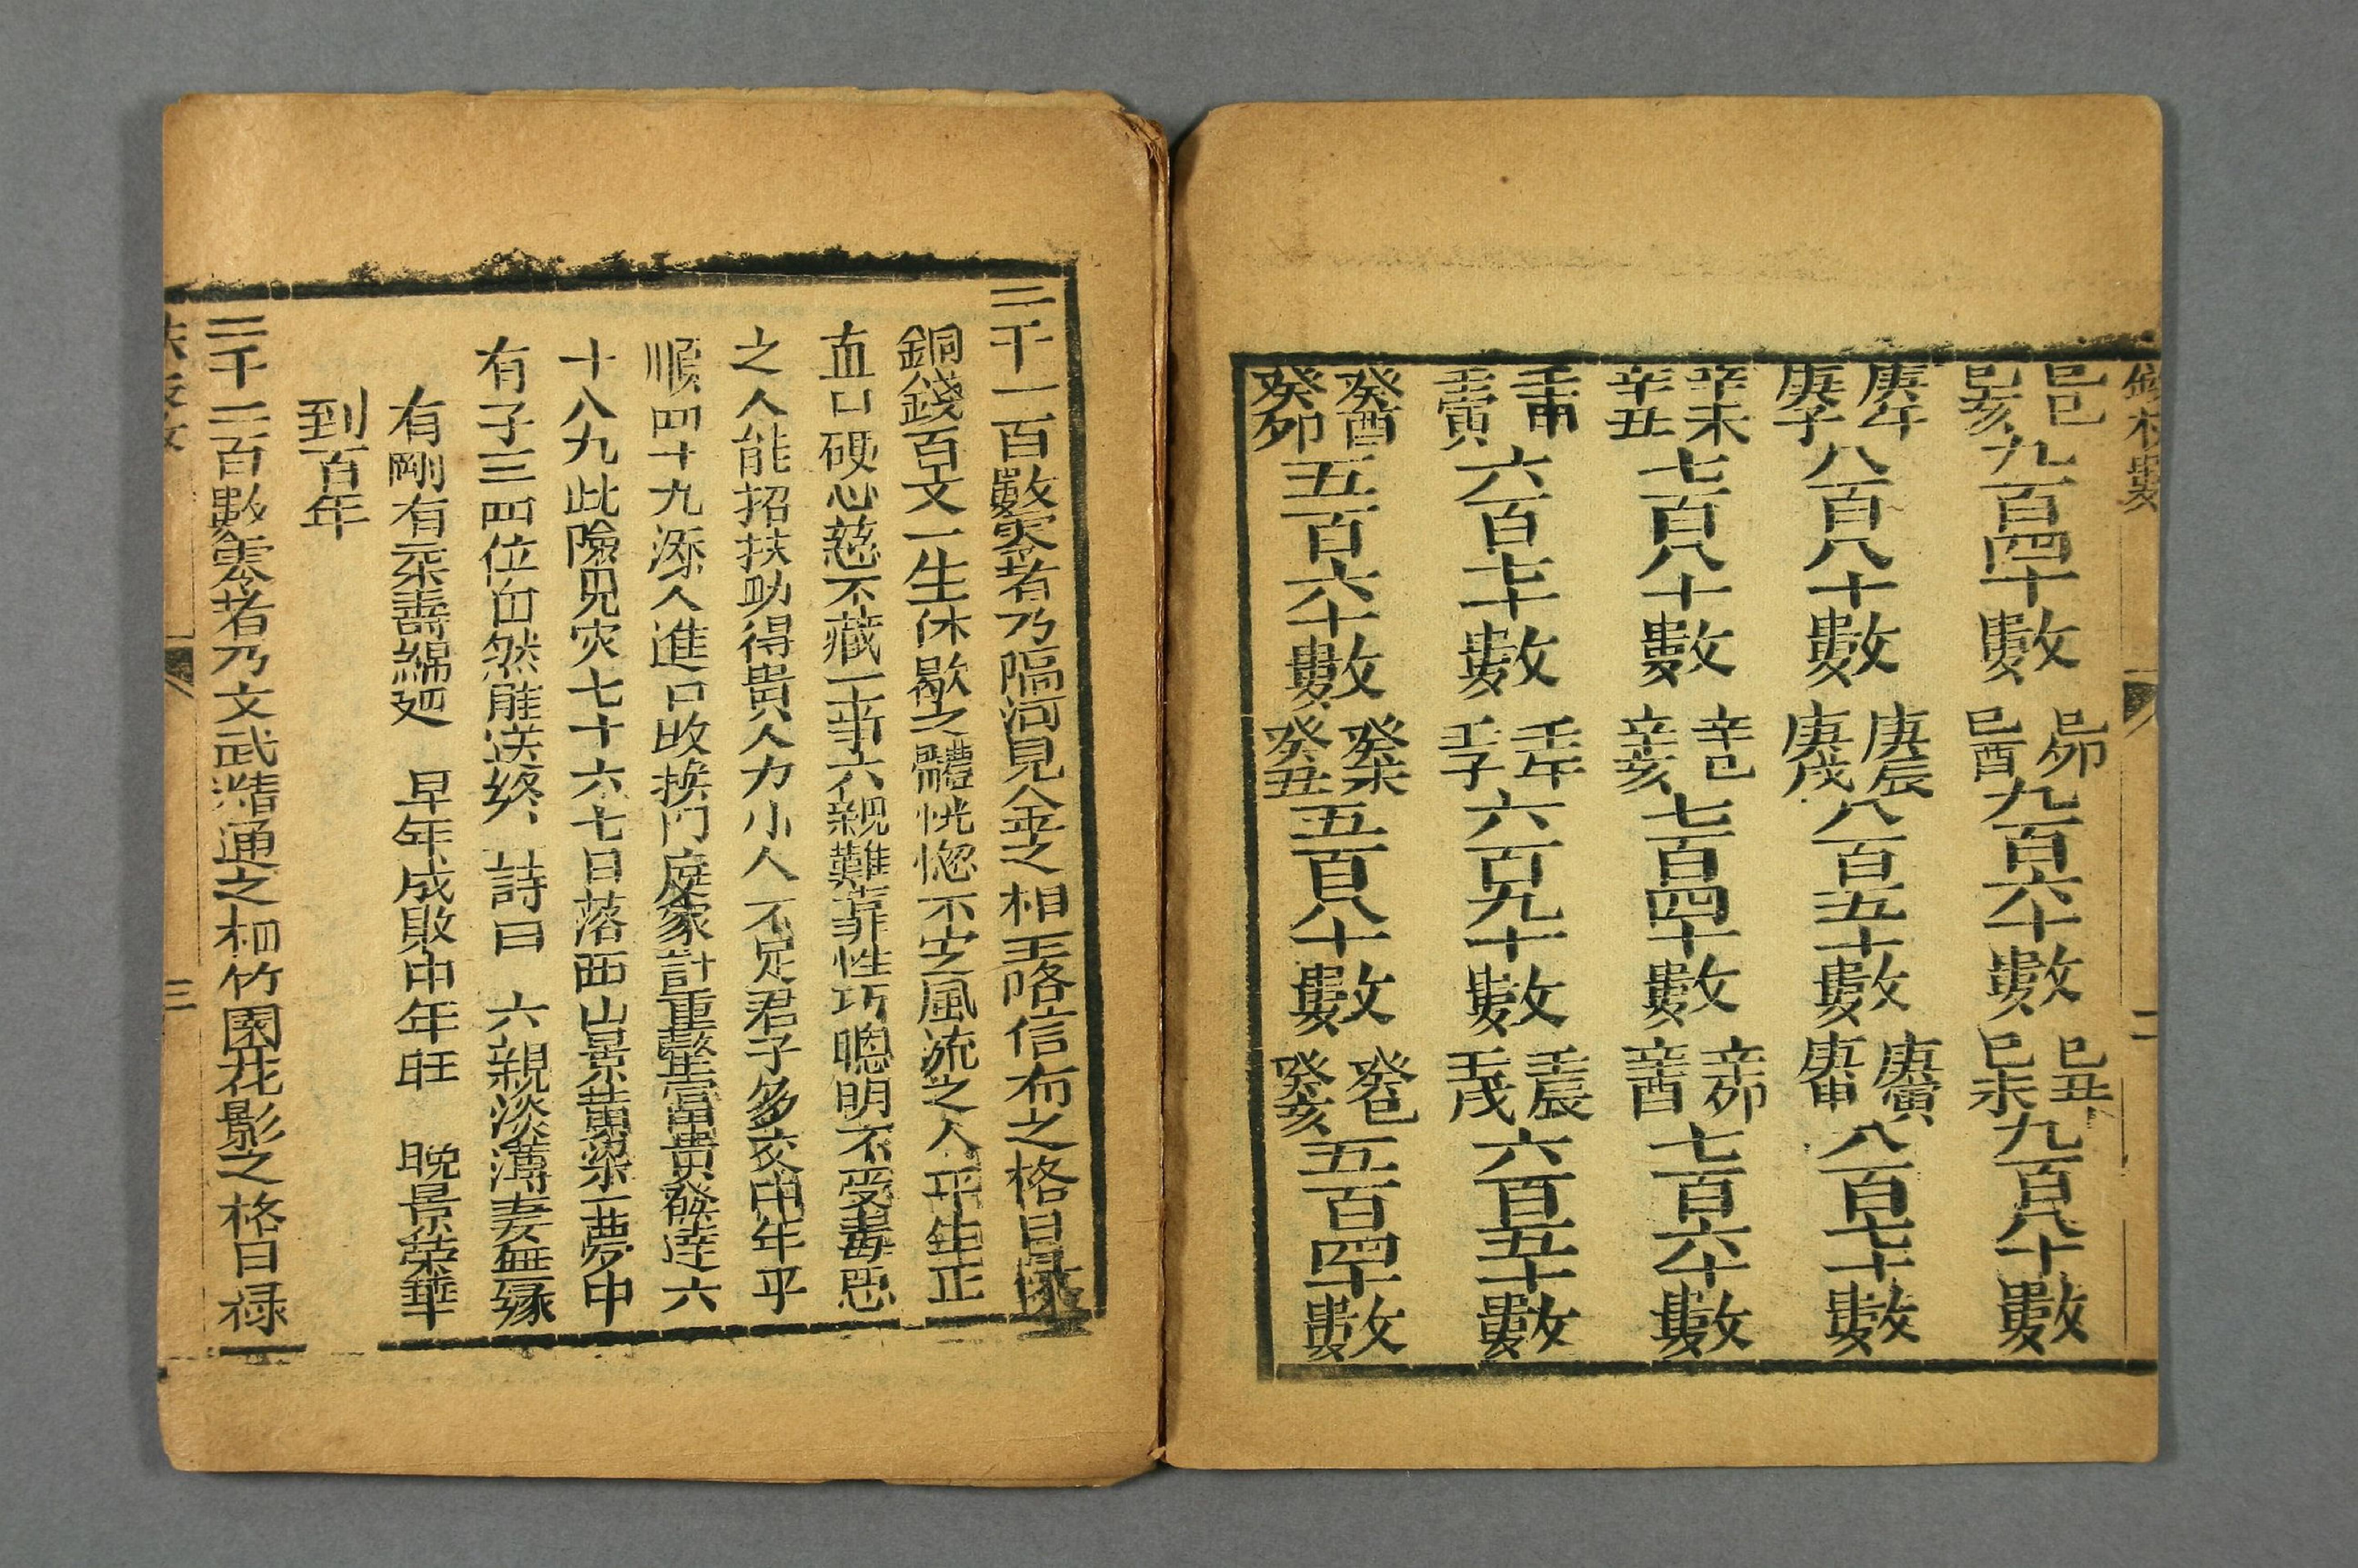 己巳己亥九百四十數 己卯己酉九百六十數 己丑己未九百八十數
庚午庚子八百八十數 庚辰庚戌八百五十數 庚寅庚申八百七十數
辛未辛丑七百八十數 辛巳辛亥七百四十數 辛卯辛酉七百六十數
壬申壬寅六百七十數 壬午壬子六百九十數 壬辰壬戌六百五十數
癸酉癸卯五百六十數 癸未癸丑五百八十數 癸巳癸亥五百四十數
二千一百數零者乃隔河見金之相玉咯信布之格日祿
銅錢百文一生休歇之體恍惚不定風流之人平生正
直口硬心慈不藏一事六親難靠性巧聰明不受毒惡
之人能招扶助得貴人力小人不足君子多交中年平
順四十九添人進口改換門庭家計重整富貴發達六
十八九此險兇灾七十六七日落西山景黃粱一夢中
有子三四位自然雁送終 詩曰 六親淡薄妻無緣
有剛有柔壽綿廻 早年成敗中年旺 晚景榮華
到百年
二千二百數零者乃文武精通之相竹園花影之格日祿
三